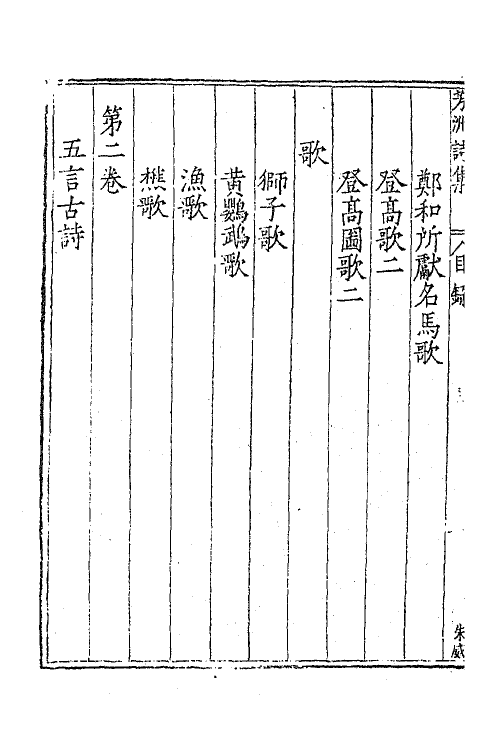 芳洲詩集 目錄 朱威
鄭和所獻名馬歌
登高歌二
登高圖歌二
歌
獅子歌
黄鸚䳇歌
漁歌
樵歌
第二卷
五言古詩